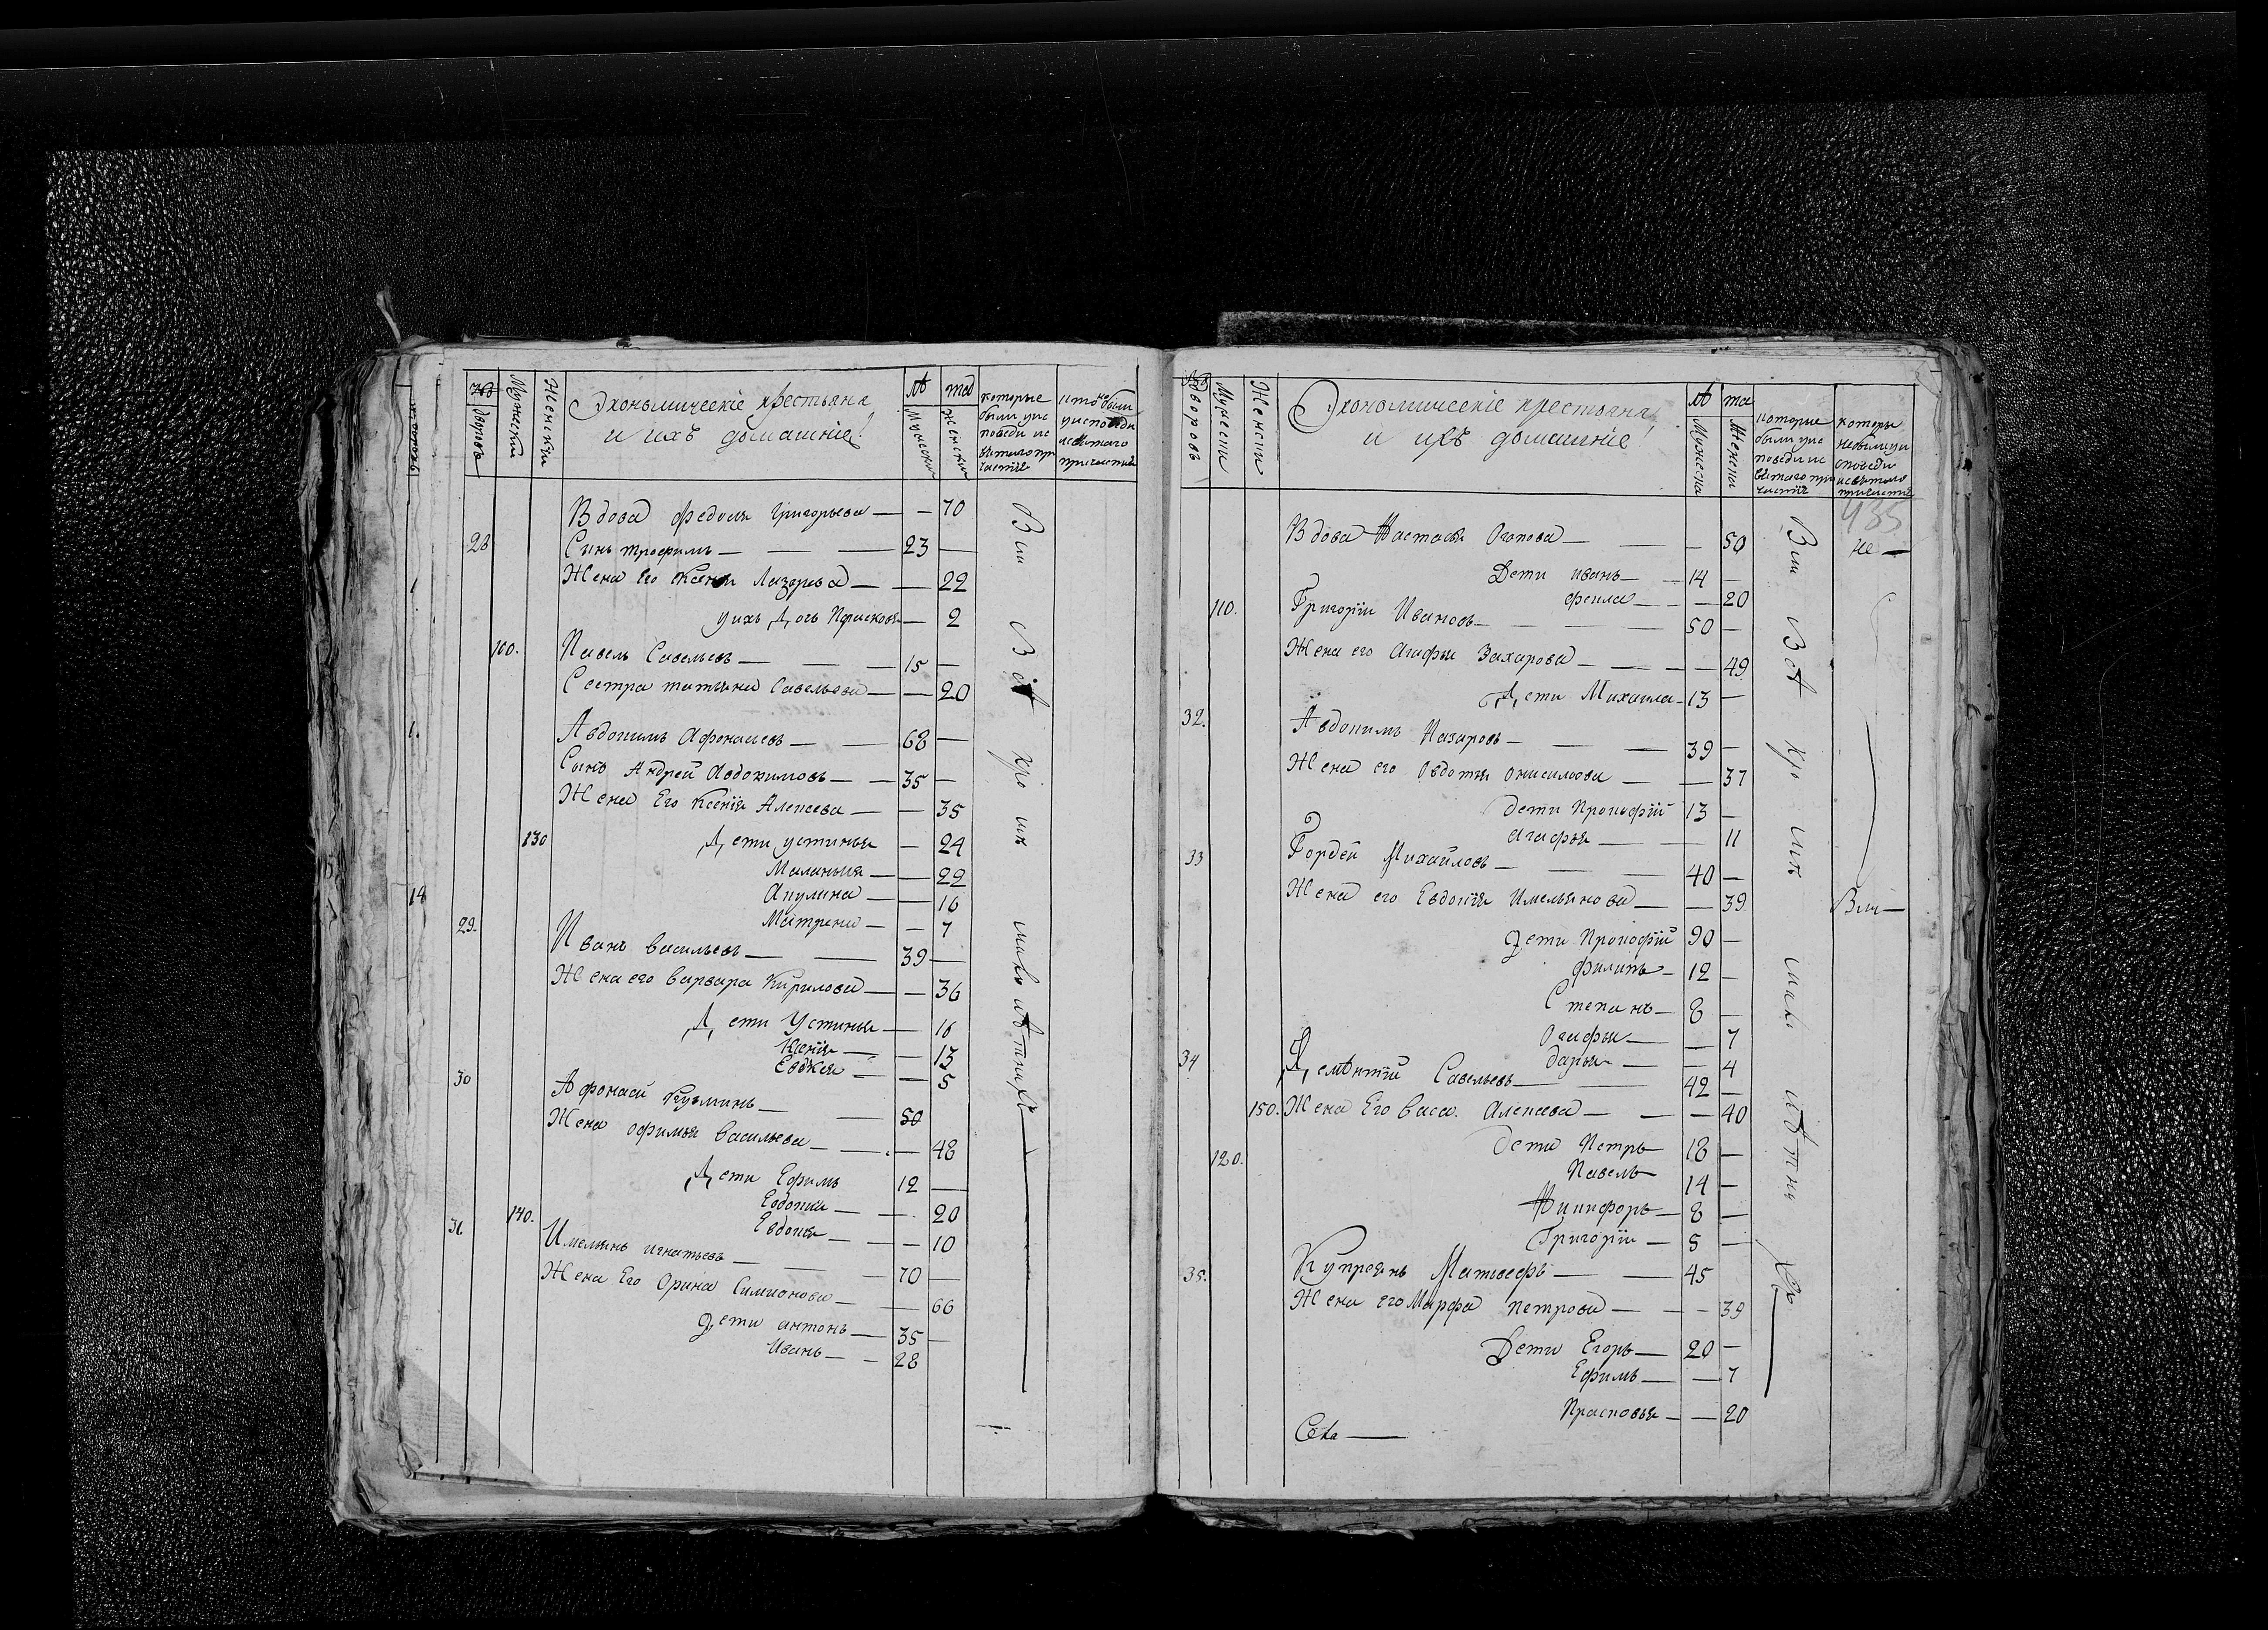 дворовъ
Мужески
Женски
Экономическіе крестьяна
и ихъ домашніе
лѣ та
Мужески
женски
которые
были уис
поведи ис
вятаго при
частія
Вдова федосья григорьева — — 70
28 Сынъ трофимъ — — — 23 —
Жена Его Лазарева — — 22
у ихъ Дочь Прасковья — 2
100. Павелъ Савельевъ — — — 15 —
Сестра татьяна Савельева — — 20
Авдокимъ Афонасьевъ — — 68 —
Сынъ Андрей Авдокимовъ — — 35 —
Жена Его Ксенія Алексева — — 35
130 Дети устинья — 24
Маланья — — 22
Акулина — — 16
Матрена — — 7
29. Иванъ васильевъ — — 39 —
Жена его варвара Кирилова — — 36
Дети Устинья — 16
Ксенія — — 13
— — 5
30 Афонасй Кузминъ — — 50
Жена офимья васильева — — — 48
Дети Ефимъ 12 —
Евдокия — — 20
140. Евдокия — — — 10
31. Имельянъ игнатьевъ — — — 70 —
Жена Его Орина Симионова — — 66
Дети антонъ — 35 —
Иванъ — — 28
Вси Всѣ кро мѣ мало лѣтныхъ
дворовъ
Мужески
Женски
Экономическіе крестьяна
и ихъ домашніе
лѣ та
Мужеска
Женска
которые
были уис
поведи ис
вятаго при
частія
которы
небыли уи
споведи
исвятаго
причастія
435
Вдова Настасья — — — 50 не —
Дети иванъ — — 14 —
— — — 20
110. Григорій Ивановъ — — — — 50 —
Жена его Агафья Захарова — — — — 49
Дети Михаила — 13 —
32. Авдокимъ Назаровъ — — — 39 —
Жена его Овдотья онисимова — — 37
дети Прокофій 13 —
агафья — — 11
33 Гордей Михайловъ — — — 40 —
Жена его Евдокія Имельянова — — 39 Вси —
Дети Прокофій 90 —
филипъ — 12 —
Степанъ — 8 —
Огафья — — 7
дарья — — 4
34 Деметтій Савельевъ — — 42 —
150. Жена Его васа. Алексева — — — 40
дети Петръ 18 —
120. Павелъ 14 —
Никифоръ — 8 —
Григорій — 5 —
35. Купреянъ Матвеефъ — — 45
Жена его Марфа петрова — — — 39
Дети Егоръ — 20 —
Ефимъ — — 7
Прасковья — — 20
Вси Всѣ кро мѣ мало лѣтны хъ